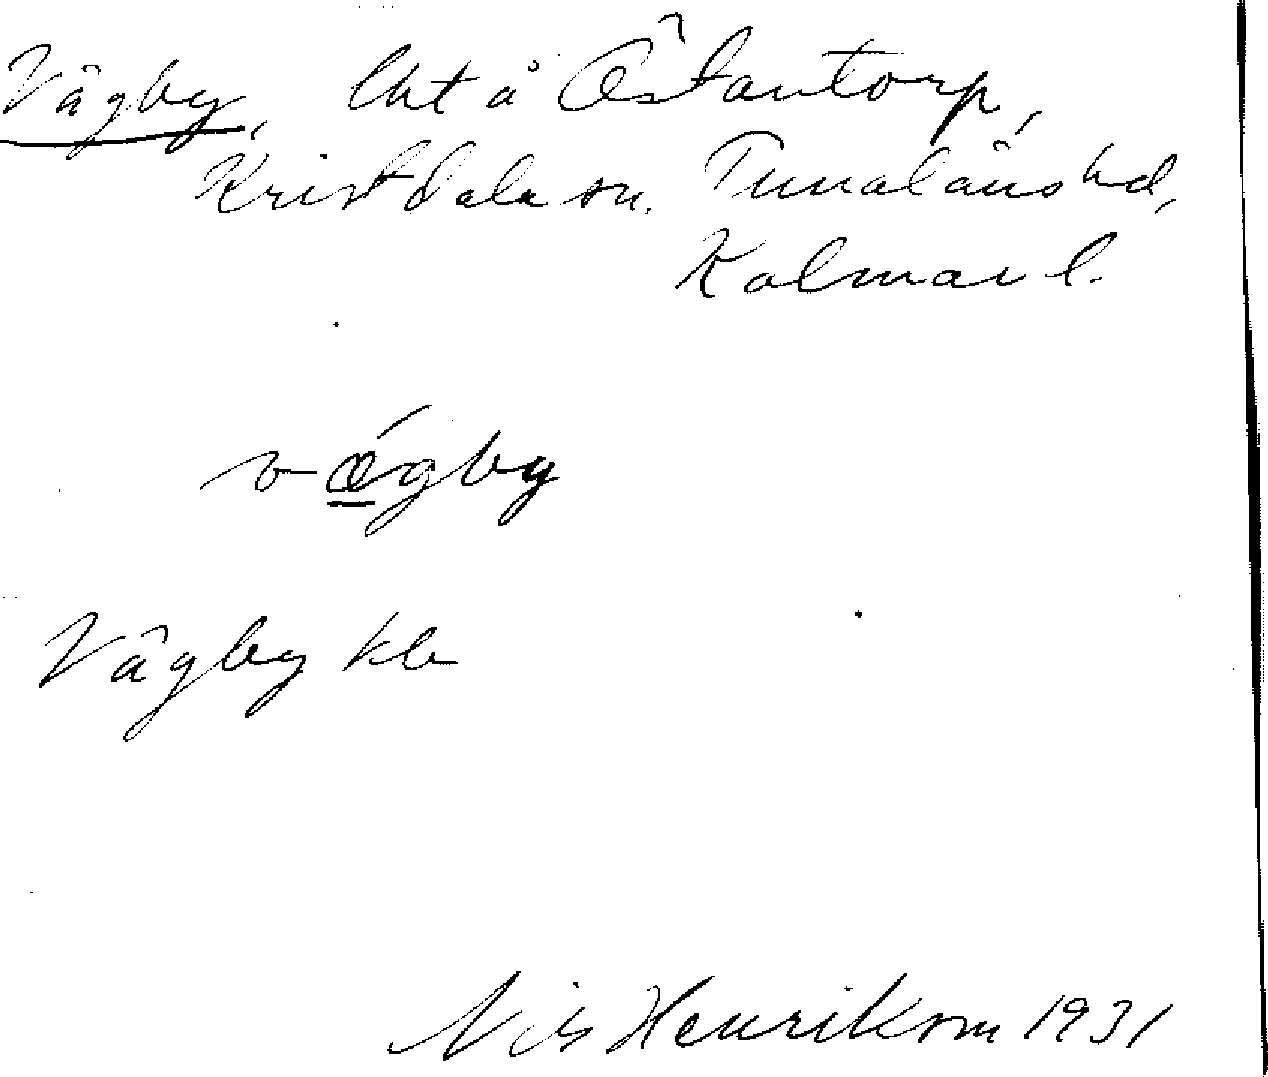 Vägby, lht å Östantorp,
Kristdala sn. Tunaläns hd,
Kalmar l.
vǽgby
Vägby kb
Nils Henrikson 1931